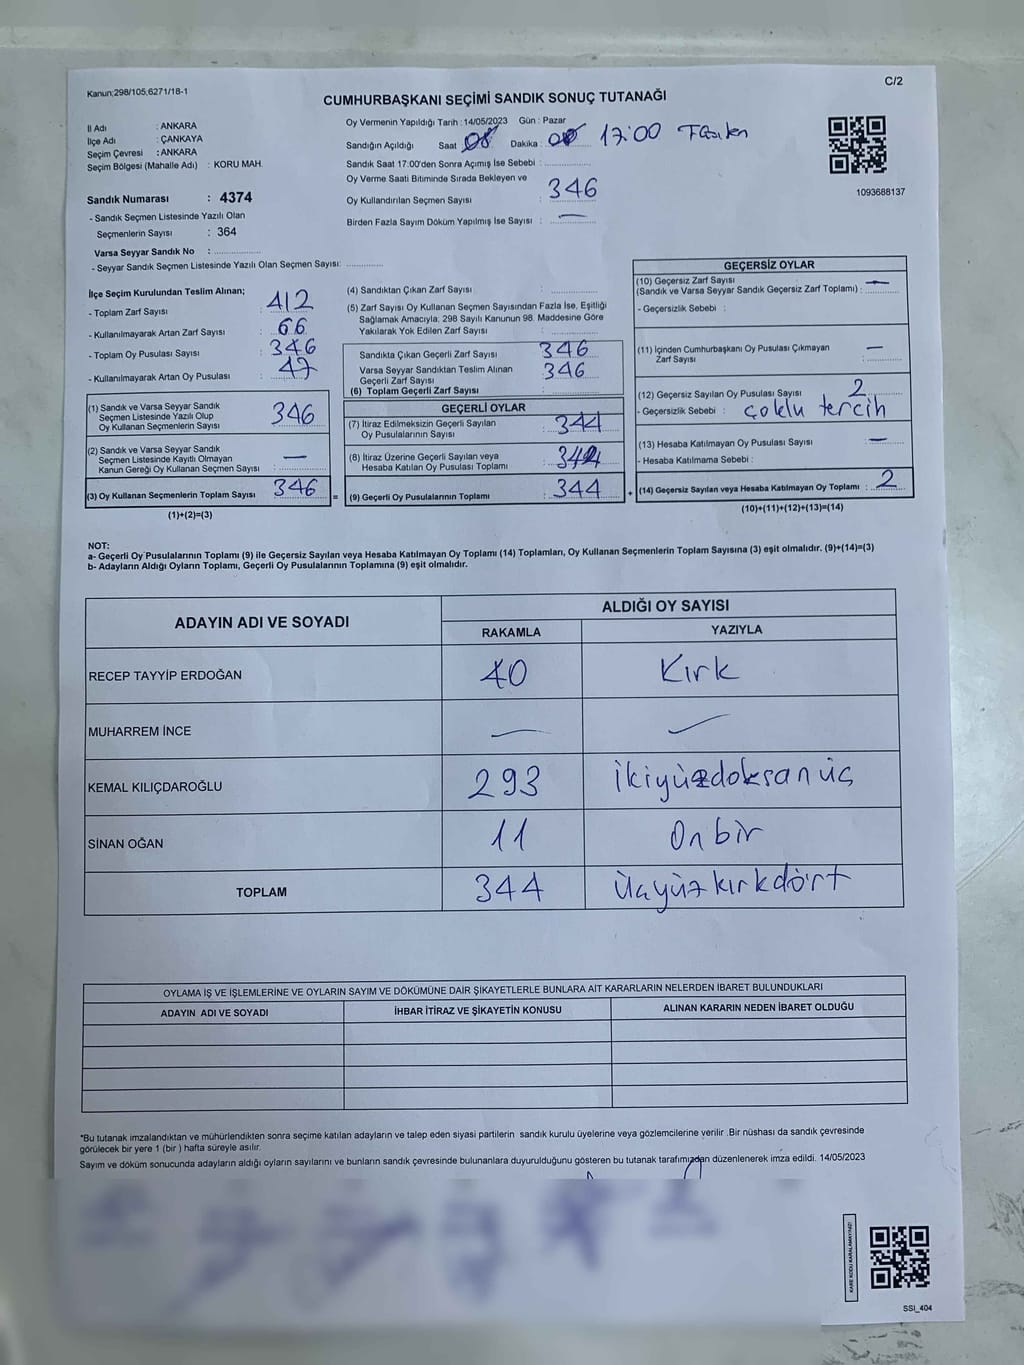 Kanun;298/105,6271/18-1
C/2
CUMHURBAŞKANI SEÇİMİ SANDIK SONUÇ TUTANAĞI
İl Adı : ANKARA
İlçe Adı : ÇANKAYA
Seçim Çevresi : ANKARA
Seçim Bölgesi (Mahalle Adı) : KORU MAH.
Sandık Numarası : 4374
- Sandık Seçmen Listesinde Yazılı Olan
Seçmenlerin Sayısı : 364
Varsa Seyyar Sandık No :
- Seyyar Sandık Seçmen Listesinde Yazılı Olan Seçmen Sayısı:
Oy Vermenin Yapıldığı Tarih : 14/05/2023 Gün : Pazar
Sandığın Açıldığı Saat 08 Dakika : 00 17:00
Sandık Saat 17.00'den Sonra Açımış İse Sebebi :
Oy Verme Saati Bitiminde Sırada Bekleyen ve
Oy Kullandırılan Seçmen Sayısı : 346
Birden Fazla Sayım Döküm Yapılmış İse Sayısı : —
1093688137
İlçe Seçim Kurulundan Teslim Alınan;
- Toplam Zarf Sayısı : 412
- Kullanılmayarak Artan Zarf Sayısı : 66
- Toplam Oy Pusulası Sayısı : 346
- Kullanılmayarak Artan Oy Pusulası : 47
(1) Sandık ve Varsa Seyyar Sandık
Seçmen Listesinde Yazılı Olup
Oy Kullanan Seçmenlerin Sayısı 346
(2) Sandık ve Varsa Seyyar Sandık
Seçmen Listesinde Kayıtlı Olmayan
Kanun Gereği Oy Kullanan Seçmen Sayısı : —
(3) Oy Kullanan Seçmenlerin Toplam Sayısı 346
(1)+(2)=(3)
(4) Sandıktan Çıkan Zarf Sayısı :
(5) Zarf Sayısı Oy Kullanan Seçmen Sayısından Fazla İse, Eşitliği
Sağlamak Amacıyla, 298 Sayılı Kanunun 98. Maddesine Göre
Yakılarak Yok Edilen Zarf Sayısı :
Sandıkta Çıkan Geçerli Zarf Sayısı 346
Varsa Seyyar Sandıktan Teslim Alınan
Geçerli Zarf Sayısı 346
(6) Toplam Geçerli Zarf Sayısı :
=
GEÇERLİ OYLAR
(7) İtiraz Edilmeksizin Geçerli Sayılan
Oy Pusulalarının Sayısı : 344
(8) İtiraz Üzerine Geçerli Sayılan veya
Hesaba Katılan Oy Pusulası Toplamı : 344
(9) Geçerli Oy Pusulalarının Toplamı : 344
+
GEÇERSİZ OYLAR
(10) Geçersiz Zarf Sayısı
(Sandık ve Varsa Seyyar Sandık Geçersiz Zarf Toplamı) : —
- Geçersizlik Sebebi :
(11) İçinden Cumhurbaşkanı Oy Pusulası Çıkmayan
Zarf Sayısı : —
(12) Geçersiz Sayılan Oy Pusulası Sayısı : 2
- Geçersizlik Sebebi : çoklu tercih
(13) Hesaba Katılmayan Oy Pusulası Sayısı : —
- Hesaba Katılmama Sebebi :
(14) Geçersiz Sayılan veya Hesaba Katılmayan Oy Toplamı : 2
(10)+(11)+(12)+(13)=(14)
NOT:
a- Geçerli Oy Pusulalarının Toplamı (9) ile Geçersiz Sayılan veya Hesaba Katılmayan Oy Toplamı (14) Toplamları, Oy Kullanan Seçmenlerin Toplam Sayısına (3) eşit olmalıdır. (9)+(14)=(3)
b- Adayların Aldığı Oyların Toplamı, Geçerli Oy Pusulalarının Toplamına (9) eşit olmalıdır.
ADAYIN ADI VE SOYADI ALDIĞI OY SAYISI
RAKAMLA YAZIYLA
RECEP TAYYİP ERDOĞAN 40 Kırk
MUHARREM İNCE — —
KEMAL KILIÇDAROĞLU 293 İkiyüzdoksanüç
SİNAN OĞAN 11 Onbir
TOPLAM 344 Üçyüzkırkdört
OYLAMA İŞ VE İŞLEMLERİNE VE OYLARIN SAYIM VE DÖKÜMÜNE DAİR ŞİKAYETLERLE BUNLARA AİT KARARLARIN NELERDEN İBARET BULUNDUKLARI
ADAYIN ADI VE SOYADI İHBAR İTİRAZ VE ŞİKAYETİN KONUSU ALINAN KARARIN NEDEN İBARET OLDUĞU
*Bu tutanak imzalandıktan ve mühürlendikten sonra seçime katılan adayların ve talep eden siyasi partilerin sandık kurulu üyelerine veya gözlemcilerine verilir .Bir nüshası da sandık çevresinde
görülecek bir yere 1 (bir ) hafta süreyle asılır.
Sayım ve döküm sonucunda adayların aldığı oyların sayılarını ve bunların sandık çevresinde bulunanlara duyurulduğunu gösteren bu tutanak tarafımızdan düzenlenerek imza edildi. 14/05/2023
KARE KODU KARALAMAYINIZ!
SSI_404